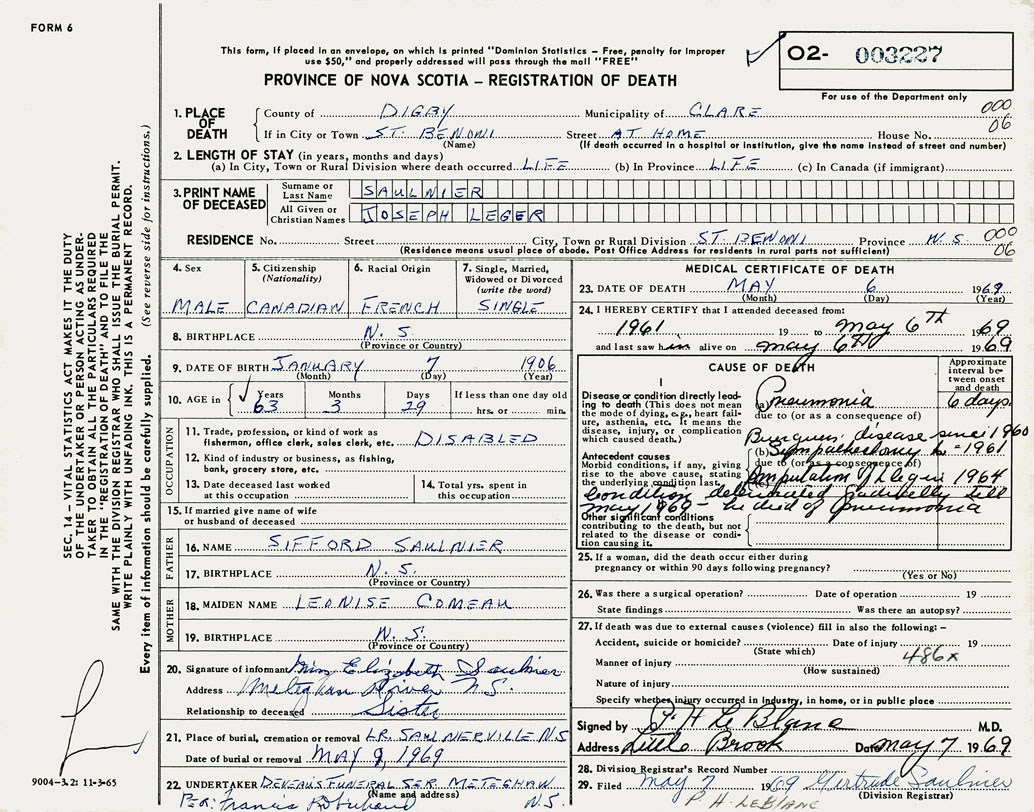 FORM 6
This form, if placed in an envelope, on which is printed "Dominion Statistics – Free, penalty for improper
use $50," and properly addressed will pass through the mail "FREE"
PROVINCE OF NOVA SCOTIA – REGISTRATION OF DEATH
02- 003227
For use of the Department only
1. PLACE OF DEATH
County of DIGBY Municipality of CLARE 000
If in City or Town ST. BENONI Street AT HOME House No. 06
(Name) (If death occurred in a hospital or institution, give the name instead of street and number)
2. LENGTH OF STAY (in years, months and days)
(a) In City, Town or Rural Division where death occurred LIFE (b) In Province LIFE (c) In Canada (if immigrant)
3. PRINT NAME OF DECEASED
Surname or Last Name SAULNIER
All Given or Christian Names JOSEPH LEGER
RESIDENCE No. Street City, Town or Rural Division ST. BENONI Province N.S. 000
(Residence means usual place of abode. Post Office Address for residents in rural parts not sufficient) 06
4. Sex MALE
5. Citizenship (Nationality) CANADIAN
6. Racial Origin FRENCH
7. Single, Married, Widowed or Divorced (write the word) SINGLE
8. BIRTHPLACE N.S.
(Province or Country)
9. DATE OF BIRTH JANUARY 7 1906
(Month) (Day) (Year)
10. AGE in Years Months Days If less than one day old
63 3 29 hrs. or min.
OCCUPATION
11. Trade, profession, or kind of work as fisherman, office clerk, sales clerk, etc. DISABLED
12. Kind of industry or business, as fishing, bank, grocery store, etc.
13. Date deceased last worked at this occupation
14. Total yrs. spent in this occupation
15. If married give name of wife or husband of deceased
FATHER
16. NAME SIFFORD SAULNIER
17. BIRTHPLACE N.S.
(Province or Country)
MOTHER
18. MAIDEN NAME LEONISE COMEAU
19. BIRTHPLACE N.S.
(Province or Country)
20. Signature of informant Elizabeth Saulnier
Address Meteghan River N.S.
Relationship to deceased Sister
21. Place of burial, cremation or removal LR. SAULNERVILLE N.S
Date of burial or removal MAY 9, 1969
22. UNDERTAKER FUNERAL SER METEGHAN
(Name and address) N.S.
PER: Francis
MEDICAL CERTIFICATE OF DEATH
23. DATE OF DEATH MAY 6 1969
(Month) (Day) (Year)
24. I HEREBY CERTIFY that I attended deceased from:
1961 19 to May 6th 1969
and last saw him alive on May 6th 1969
CAUSE OF DEATH
Approximate interval between onset and death
I
Disease or condition directly leading to death (This does not mean the mode of dying, e.g., heart failure, asthenia, etc. It means the disease, injury, or complication which caused death.)
(a) Pneumonia 6 days
due to (or as a consequence of)
disease since 1960
Antecedent causes
Morbid conditions, if any, giving rise to the above cause, stating the underlying condition last.
(b) 1961
due to (or as a consequence of)
Amputation of 1964
Condition gradually till
May 1969 – he died of pneumonia
Other significant conditions contributing to the death, but not related to the disease or condition causing it.
25. If a woman, did the death occur either during pregnancy or within 90 days following pregnancy?
(Yes or No)
26. Was there a surgical operation? Date of operation 19
State findings Was there an autopsy?
27. If death was due to external causes (violence) fill in also the following: –
Accident, suicide or homicide? Date of injury 19
(State which) 486x
Manner of injury
(How sustained)
Nature of injury
Specify whether injury occurred in industry, in home, or in public place
Signed by J. H Le Blanc M.D.
Address Little Brook Date May 7 1969
28. Division Registrar's Record Number
29. Filed May 7 1969 Gertrude Saulnier
(Division Registrar)
P. H. LEBLANC
SEC. 14 – VITAL STATISTICS ACT MAKES IT THE DUTY
OF THE UNDERTAKER OR PERSON ACTING AS UNDER-
TAKER TO OBTAIN ALL THE PARTICULARS REQUIRED
IN THE "REGISTRATION OF DEATH" AND TO FILE THE
SAME WITH THE DIVISION REGISTRAR WHO SHALL ISSUE THE BURIAL PERMIT.
WRITE PLAINLY WITH UNFADING INK. THIS IS A PERMANENT RECORD.
Every item of information should be carefully supplied. (See reverse side for instructions.)
9004-3.2: 11-3-65